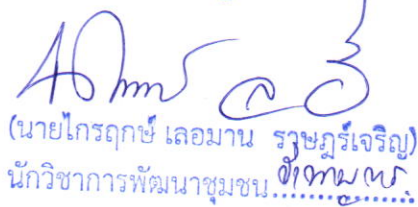 (นายไกรฤกษ์ เลอมาน ราษฎร์เจริญ)
นักวิชาการพัฒนาชุมชน ชำนาญการ